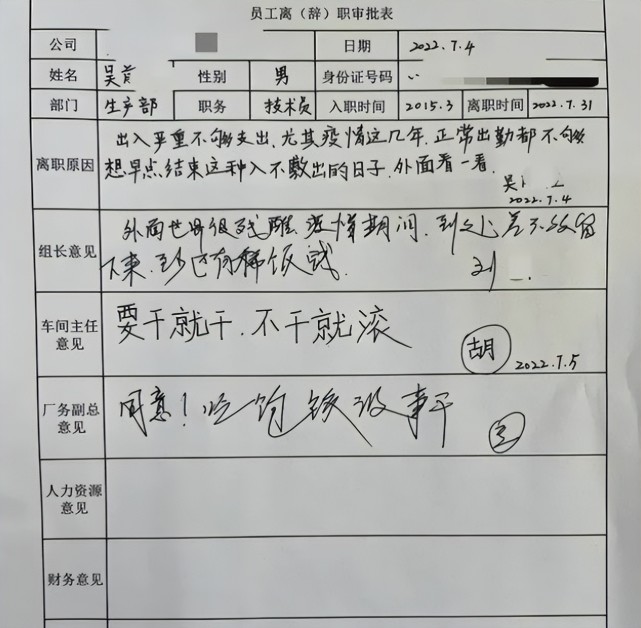 员工离（辞）职审批表
公司 日期 2022.7.4
姓名 吴 性别 男 身份证号码
部门 生产部 职务 技术员 入职时间 2015.3 离职时间 2022.7.31
离职原因 出入严重不够支出，尤其疫情这几年，正常出勤都不够
想早点结束这种入不敷出的日子，外面看一看。
吴
2022.7.4
组长意见 外面世界很残酷，疫情期间，到处差不多，留
下来，至少还有稀饭喝
刘
车间主任
意见 要干就干，不干就滚
胡 2022.7.5
厂务副总
意见 同意！吃饱饭没事干
人力资源
意见
财务意见